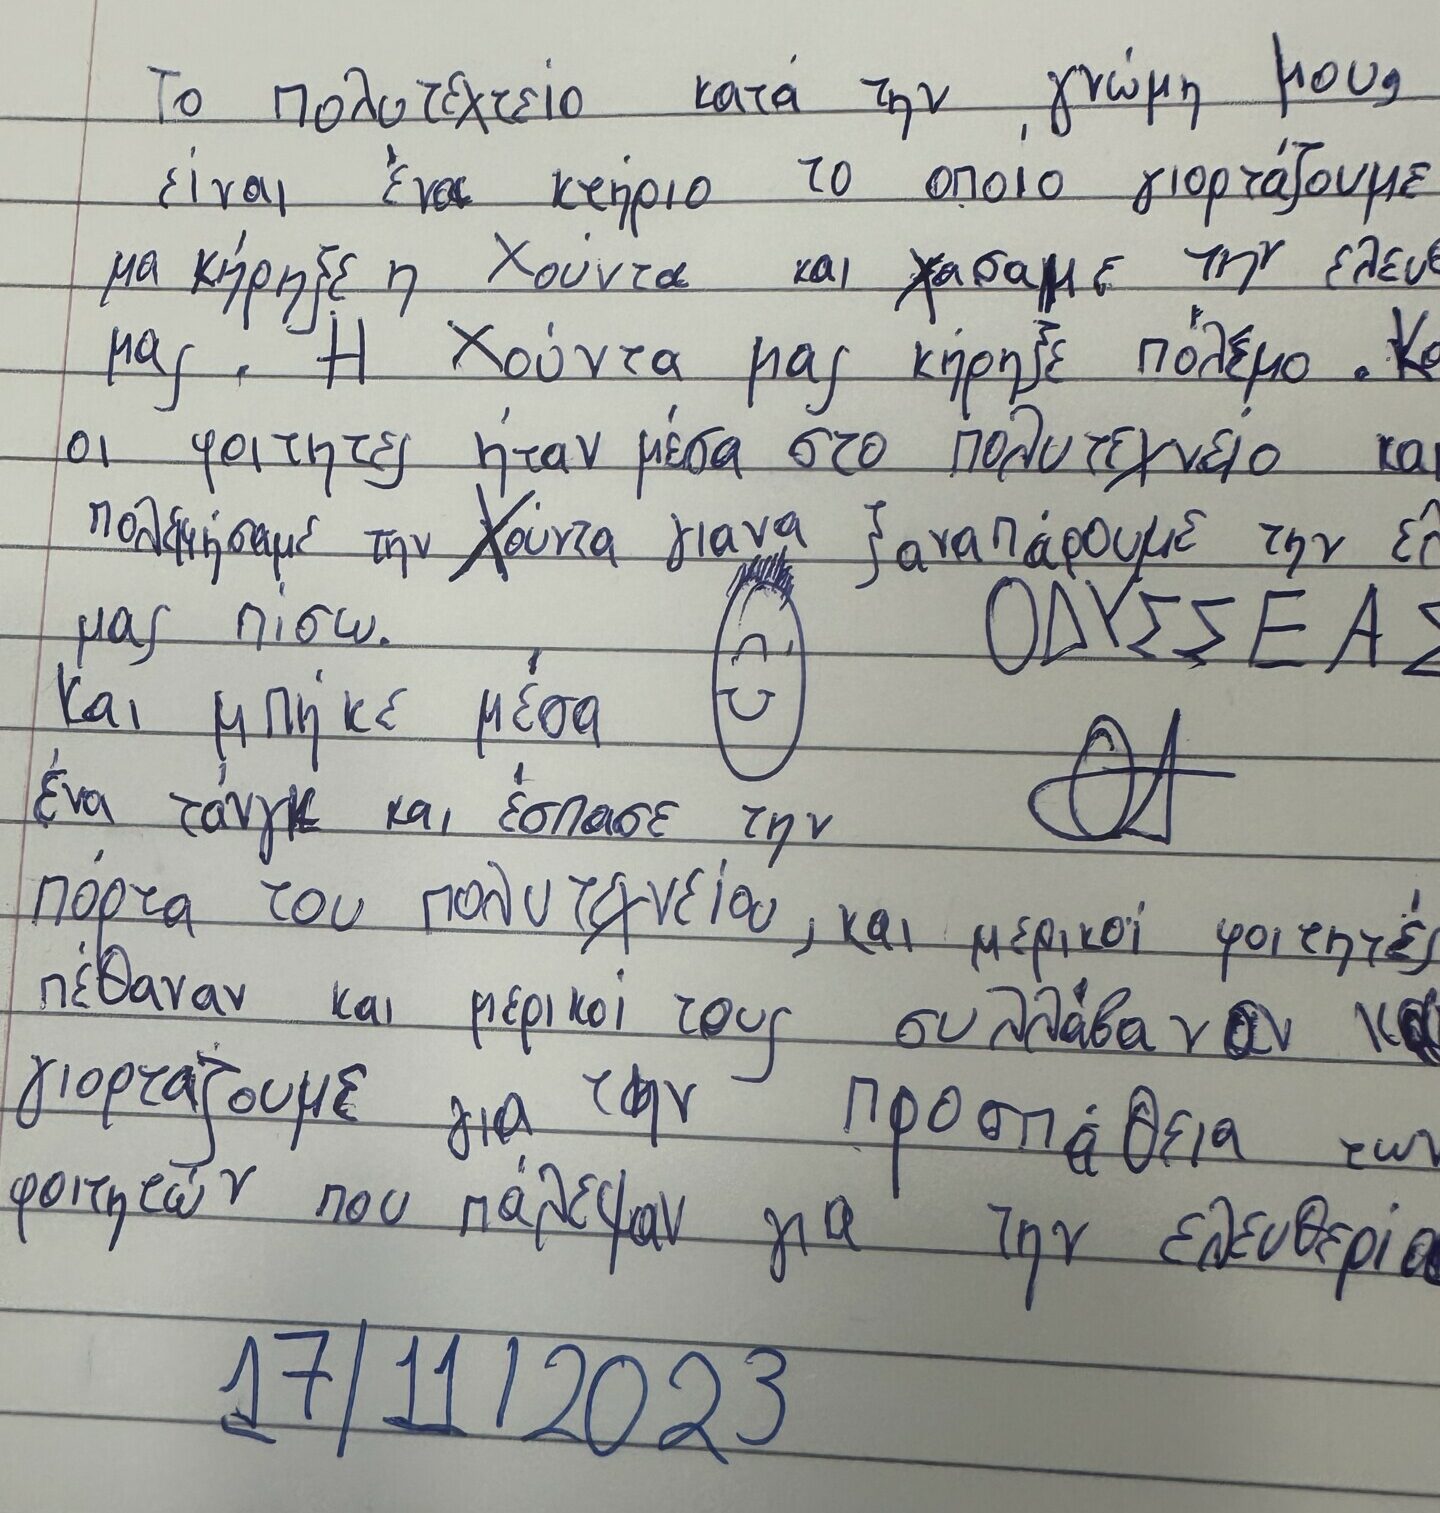 Το πολυτεχτείο κατά την γνώμη μους
είναι ένα κτήριο το οποίο γιορτάζουμε
μα κήρηξε η Χούντα και χασαμε την ελευθ
μας. Η Χούντα μας κήρηξε πόλεμο. Κα
οι φοιτητες ήταν μέσα στο πολυτεχνείο και
πολεμήσαμε την Χούντα γιανα ξαναπάρουμε την ελ
μας πίσω.
ΟΔΥΣΣΕΑΣ
Και μπήκε μέσα
ένα τάνγκ και έσπασε την
πόρτα του πολυτεχνείου, και μερικοί φοιτητές
πέθαναν και μερικοί τους συλλάβαναν και
γιορτάζουμε για την προσπάθεια των
φοιτητών που πάλεψαν για την ελευθερία
17/11/2023